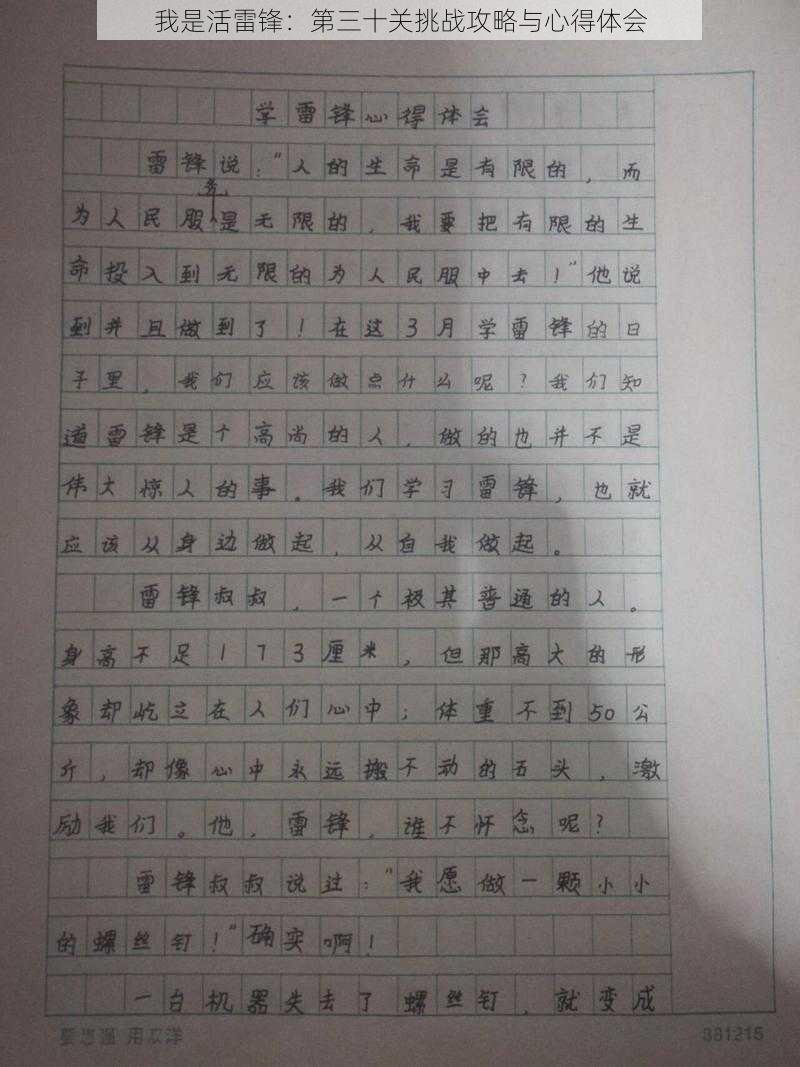 我是活雷锋：第三十关挑战攻略与心得体会
学雷锋心得体会
雷锋说：“人的生命是有限的，而
务
为人民服是无限的，我要把有限的生
命投入到无限的为人民服中去！”他说
到并且做到了！在这3月学雷锋的日
子里，我们应该做点什么呢？我们知
道雷锋是个高尚的人，做的也并不是
伟大惊人的事。我们学习雷锋，也就
应该从身边做起，从自我做起。
雷锋叔叔，一个极其普通的人。
身高不足173厘米，但那高大的形
象却屹立在人们心中；体重不到50公
斤，却像心中永远搬不动的石头，激
励我们。他，雷锋，谁不怀念呢？
雷锋叔叔说过：“我愿做一颗小小
的螺丝钉！”确实啊！
一台机器失去了螺丝钉，就变成
381215